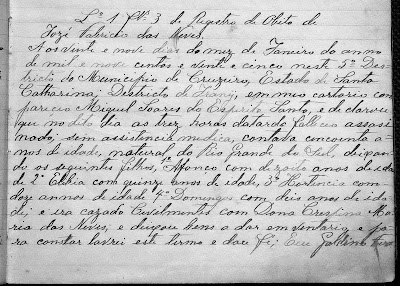 Lº 1 Nº 3 de Registro de Obito de
José Fabricio das Neves.
Aos vinte e nove dias do mez de Janeiro do anno
de mil e nove centos e vente e cinco neste 5º Des
tricto do Municipio de Cruzeiro, Estado de Santa
Catharina; Destricto de Irany, em meu cartorio com
pareceo Miguel Soares do Espirito Santo, e declarou
que no dito dia as trez horas da tarde falleceo assasi
nado; sem assistencia medica, contava concoenta a
nos de idade, natural do Rio Grande do Sul, deixan
do os seguintes filhos, 1º Affonço com dezoito anos de ida
de 2º Ethia com quinze anos de idade, 3º Hortencia com
doze annos de idade 4º Domingos com deis anos de ida
de; e era cazado Civilmentes com Dona Crespina Ma
ria das Neves, e deixou bens a dar em ventario e pa
ra constar lavrei este termo e dou fé; Eu